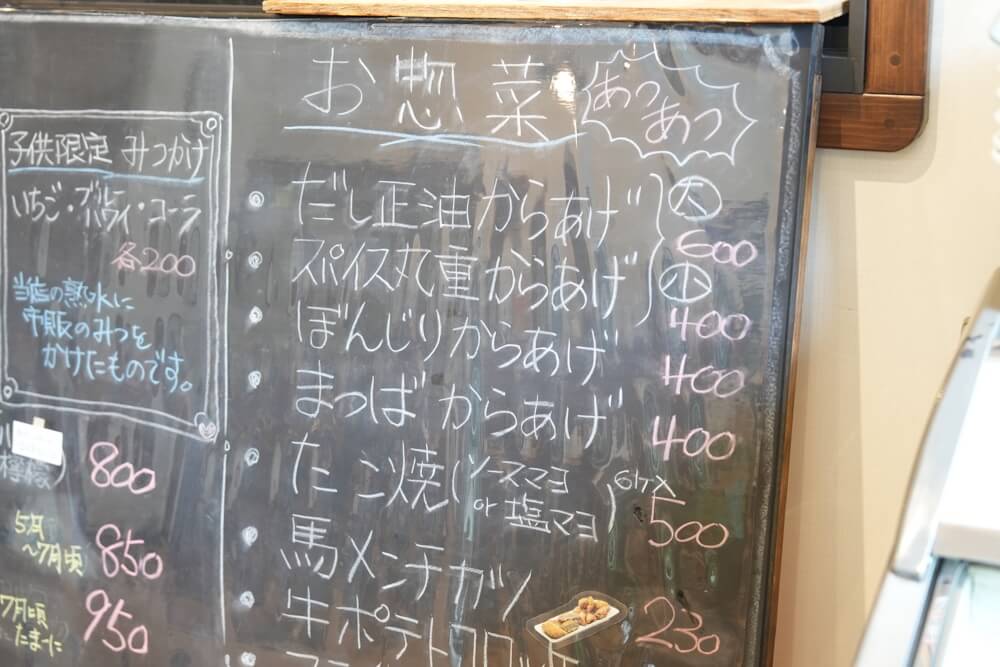 子供限定 みつかけ
いちご・ブルーハワイ・コーラ
各200
当店の熟氷に
市販のみつを
かけたものです。
800
5月
～7月頃
850
7月頃
たまに
950
お惣菜
あつ
あつ
だし正油からあげ
大
600
スパイス丸重からあげ
小
400
ぼんじりからあげ
400
まつばからあげ
400
たこ焼(ソースマヨ
or 塩マヨ)
6ケ入
500
馬メンチカツ
牛ポテトコロッケ
230